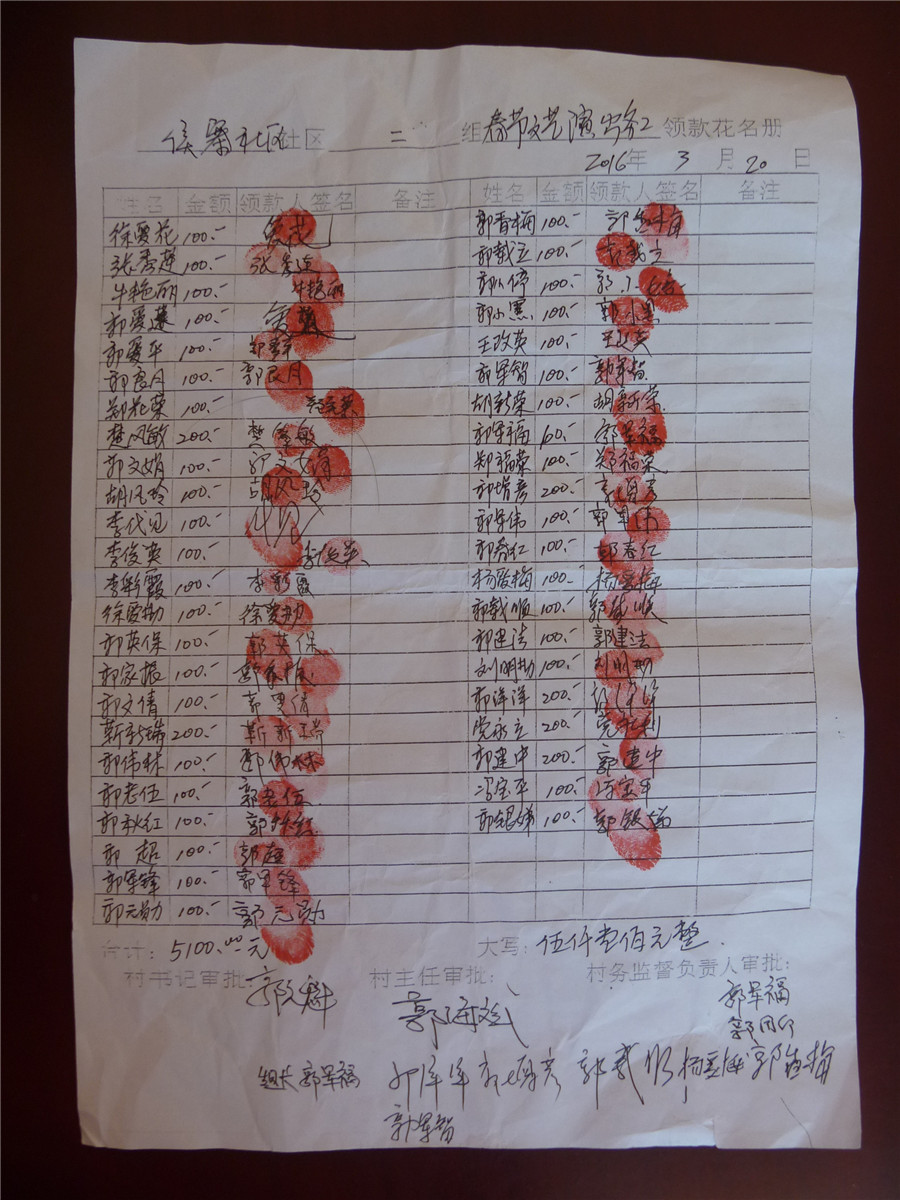 侯寨社区社区 二 组春节文艺演出务工领款花名册
2016年 3 月 20 日
姓名 金额 领款人签名 备注 姓名 金额 领款人签名 备注
徐爱花 100.- 爱花 郭春梅 100.-
张秀莲 100.- 张秀莲 郭战立 100.- 郭战立
牛艳丽 100.- 牛艳丽 100.-
郭爱莲 100.- 爱莲 郭小黑 100.- 郭小黑
郭爱平 100.- 王改英 100.- 王改英
郭良月 100.- 郭良月 郭军智 100.- 郭军智
郑花荣 100.- 胡新荣 100.- 胡新荣
樊风敏 200.- 郭军福 60.- 郭军福
郭文娟 100.- 郭文娟 郑福荣 100.- 郑福荣
胡风玲 100.- 胡风玲 郭增彦 200.-
李代见 100.- 代见 郭军伟 100.- 郭军伟
李俊英 100.- 李俊英 郭春红 100.- 郭春红
李彩霞 100.- 李彩霞 杨爱梅 100.- 杨爱梅
徐爱勤 100.- 徐爱勤 郭战顺 100.- 郭战顺
郭英保 100.- 郭英保 郭建法 100.- 郭建法
郭家振 100.- 郭家振 刘明勤 100.-
郭文倩 100.- 郭文倩 郭洋洋 200.-
靳新瑞 200.- 靳新瑞 党永立 200.-
郭伟林 100.- 郭伟林 郭建中 200.- 郭建中
郭老伍 100.- 郭老伍 冯宝平 100.- 冯宝平
郭秋红 100.- 郭秋红 郭银娣 100.-
郭超 100.- 郭超
郭军锋 100.- 郭军锋
郭元勋 100.- 郭元勋
合计: 5100.00元 大写: 伍仟壹佰元整.
村书记审批: 村主任审批: 村务监督负责人审批:
郭海斌 郭军福
组长 郭军福
郭军智